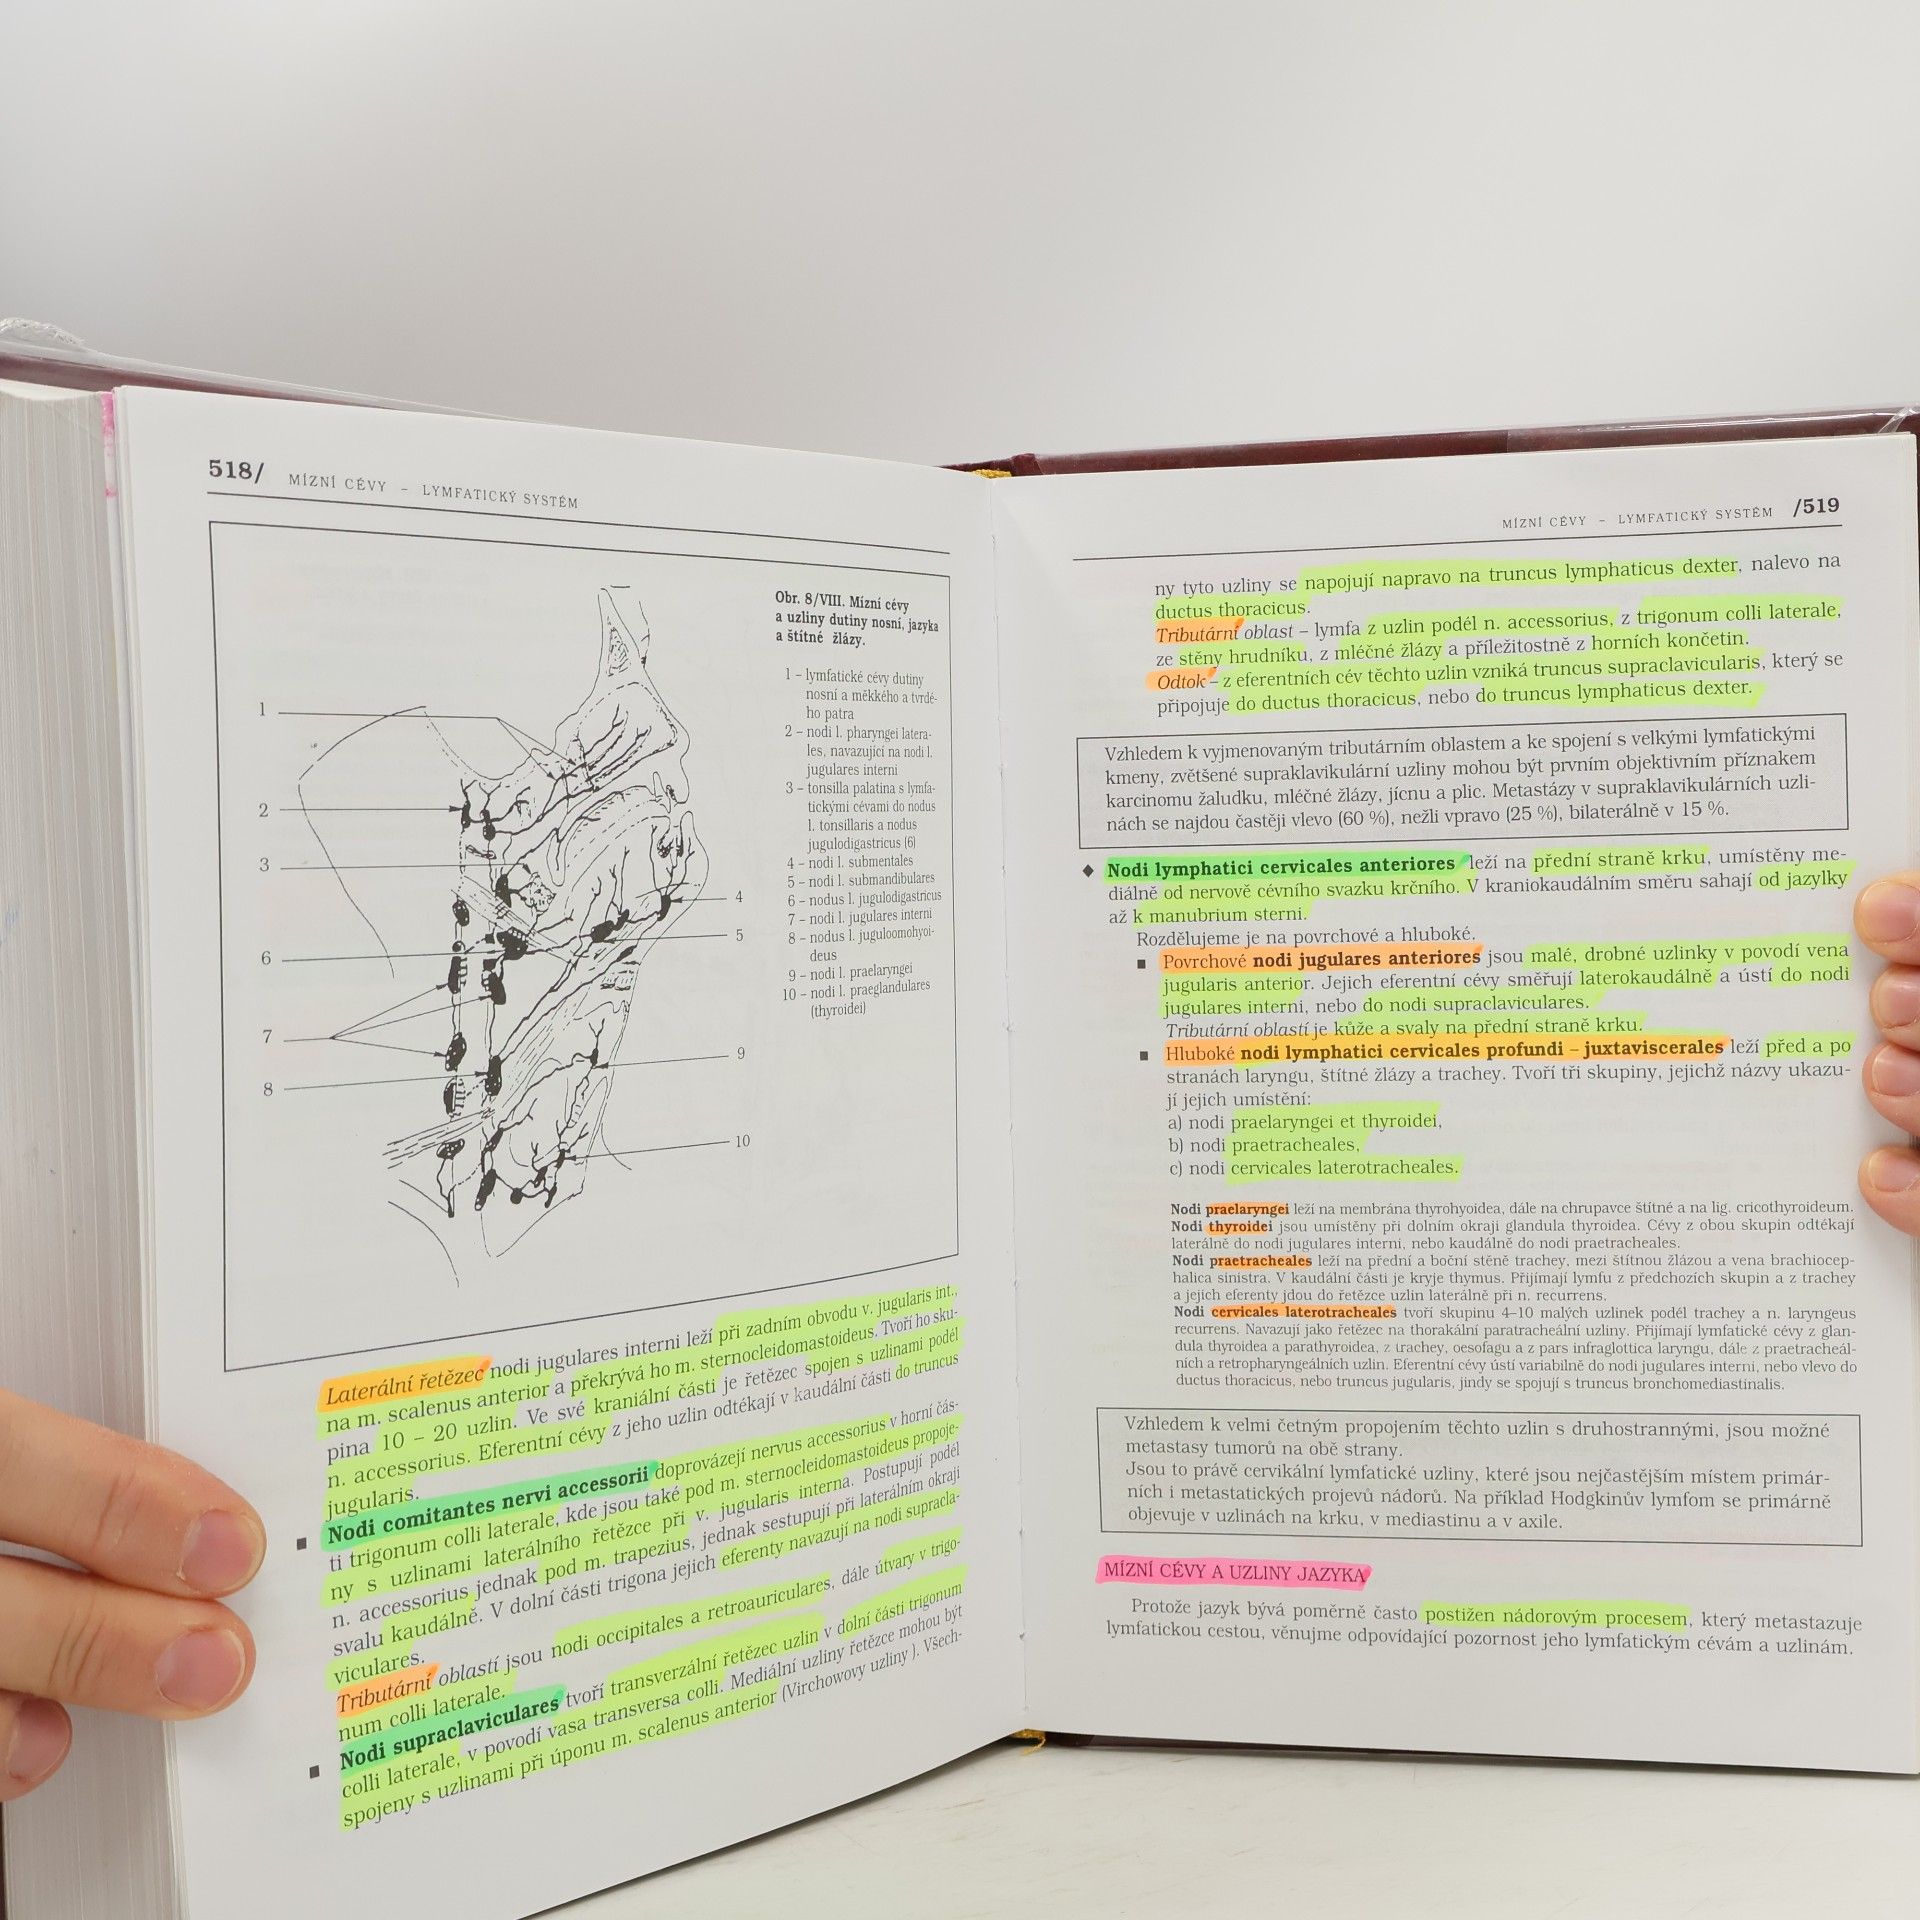 518/ MÍZNÍ CÉVY – LYMFATICKÝ SYSTÉM
Obr. 8/VIII. Mízní cévy
a uzliny dutiny nosní, jazyka
a štítné žlázy.
1 – lymfatické cévy dutiny
nosní a měkkého a tvrdé-
ho patra
2 – nodi l. pharyngei latera-
les, navazující na nodi l.
jugulares interni
3 – tonsilla palatina s lymfa-
tickými cévami do nodus
l. tonsillaris a nodus
jugulodigastricus (6)
4 – nodi l. submentales
5 – nodi l. submandibulares
6 – nodus l. jugulodigastricus
7 – nodi l. jugulares interni
8 – nodus l. juguloomohyoi-
deus
9 – nodi l. praelaryngei
10 – nodi l. praeglandulares
(thyroidei)
1
2
3
4
5
6
7
8
9
10
Laterální řetězec nodi jugulares interni leží při zadním obvodu v. jugularis int.,
na m. scalenus anterior a překrývá ho m. sternocleidomastoideus. Tvoří ho sku-
pina 10 – 20 uzlin. Ve své kraniální části je řetězec spojen s uzlinami podél
n. accessorius. Eferentní cévy z jeho uzlin odtékají v kaudální části do truncus
jugularis.
■ Nodi comitantes nervi accessorii doprovázejí nervus accessorius v horní čás-
ti trigonum colli laterale, kde jsou také pod m. sternocleidomastoideus propoje-
ny s uzlinami laterálního řetězce při v. jugularis interna. Postupují podél
n. accessorius jednak pod m. trapezius, jednak sestupují při laterálním okraji
svalu kaudálně. V dolní části trigona jejich eferenty navazují na nodi supracla-
viculares.
Tributární oblastí jsou nodi occipitales a retroauriculares, dále útvary v trigo-
num colli laterale.
■ Nodi supraclaviculares tvoří transverzální řetězec uzlin v dolní části trigonum
colli laterale, v povodí vasa transversa colli. Mediální uzliny řetězce mohou být
spojeny s uzlinami při úponu m. scalenus anterior (Virchowovy uzliny ). Všech-
MÍZNÍ CÉVY – LYMFATICKÝ SYSTÉM /519
ny tyto uzliny se napojují napravo na truncus lymphaticus dexter, nalevo na
ductus thoracicus.
Tributární oblast – lymfa z uzlin podél n. accessorius, z trigonum colli laterale,
ze stěny hrudníku, z mléčné žlázy a příležitostně z horních končetin.
Odtok – z eferentních cév těchto uzlin vzniká truncus supraclavicularis, který se
připojuje do ductus thoracicus, nebo do truncus lymphaticus dexter.
Vzhledem k vyjmenovaným tributárním oblastem a ke spojení s velkými lymfatickými
kmeny, zvětšené supraklavikulární uzliny mohou být prvním objektivním příznakem
karcinomu žaludku, mléčné žlázy, jícnu a plic. Metastázy v supraklavikulárních uzli-
nách se najdou častěji vlevo (60 %), nežli vpravo (25 %), bilaterálně v 15 %.
◆ Nodi lymphatici cervicales anteriores leží na přední straně krku, umístěny me-
diálně od nervově cévního svazku krčního. V kraniokaudálním směru sahají od jazylky
až k manubrium sterni.
Rozdělujeme je na povrchové a hluboké.
■ Povrchové nodi jugulares anteriores jsou malé, drobné uzlinky v povodí vena
jugularis anterior. Jejich eferentní cévy směřují laterokaudálně a ústí do nodi
jugulares interni, nebo do nodi supraclaviculares.
Tributární oblastí je kůže a svaly na přední straně krku.
■ Hluboké nodi lymphatici cervicales profundi – juxtaviscerales leží před a po
stranách laryngu, štítné žlázy a trachey. Tvoří tři skupiny, jejichž názvy ukazu-
jí jejich umístění:
a) nodi praelaryngei et thyroidei,
b) nodi praetracheales,
c) nodi cervicales laterotracheales.
Nodi praelaryngei leží na membrána thyrohyoidea, dále na chrupavce štítné a na lig. cricothyroideum.
Nodi thyroidei jsou umístěny při dolním okraji glandula thyroidea. Cévy z obou skupin odtékají
laterálně do nodi jugulares interni, nebo kaudálně do nodi praetracheales.
Nodi praetracheales leží na přední a boční stěně trachey, mezi štítnou žlázou a vena brachiocep-
halica sinistra. V kaudální části je kryje thymus. Přijímají lymfu z předchozích skupin a z trachey
a jejich eferenty jdou do řetězce uzlin laterálně při n. recurrens.
Nodi cervicales laterotracheales tvoří skupinu 4–10 malých uzlinek podél trachey a n. laryngeus
recurrens. Navazují jako řetězec na thorakální paratracheální uzliny. Přijímají lymfatické cévy z glan-
dula thyroidea a parathyroidea, z trachey, oesofagu a z pars infraglottica laryngu, dále z praetracheál-
ních a retropharyngeálních uzlin. Eferentní cévy ústí variabilně do nodi jugulares interni, nebo vlevo do
ductus thoracicus, nebo truncus jugularis, jindy se spojují s truncus bronchomediastinalis.
Vzhledem k velmi četným propojením těchto uzlin s druhostrannými, jsou možné
metastasy tumorů na obě strany.
Jsou to právě cervikální lymfatické uzliny, které jsou nejčastějším místem primár-
ních i metastatických projevů nádorů. Na příklad Hodgkinův lymfom se primárně
objevuje v uzlinách na krku, v mediastinu a v axile.
MÍZNÍ CÉVY A UZLINY JAZYKA
Protože jazyk bývá poměrně často postižen nádorovým procesem, který metastazuje
lymfatickou cestou, věnujme odpovídající pozornost jeho lymfatickým cévám a uzlinám.